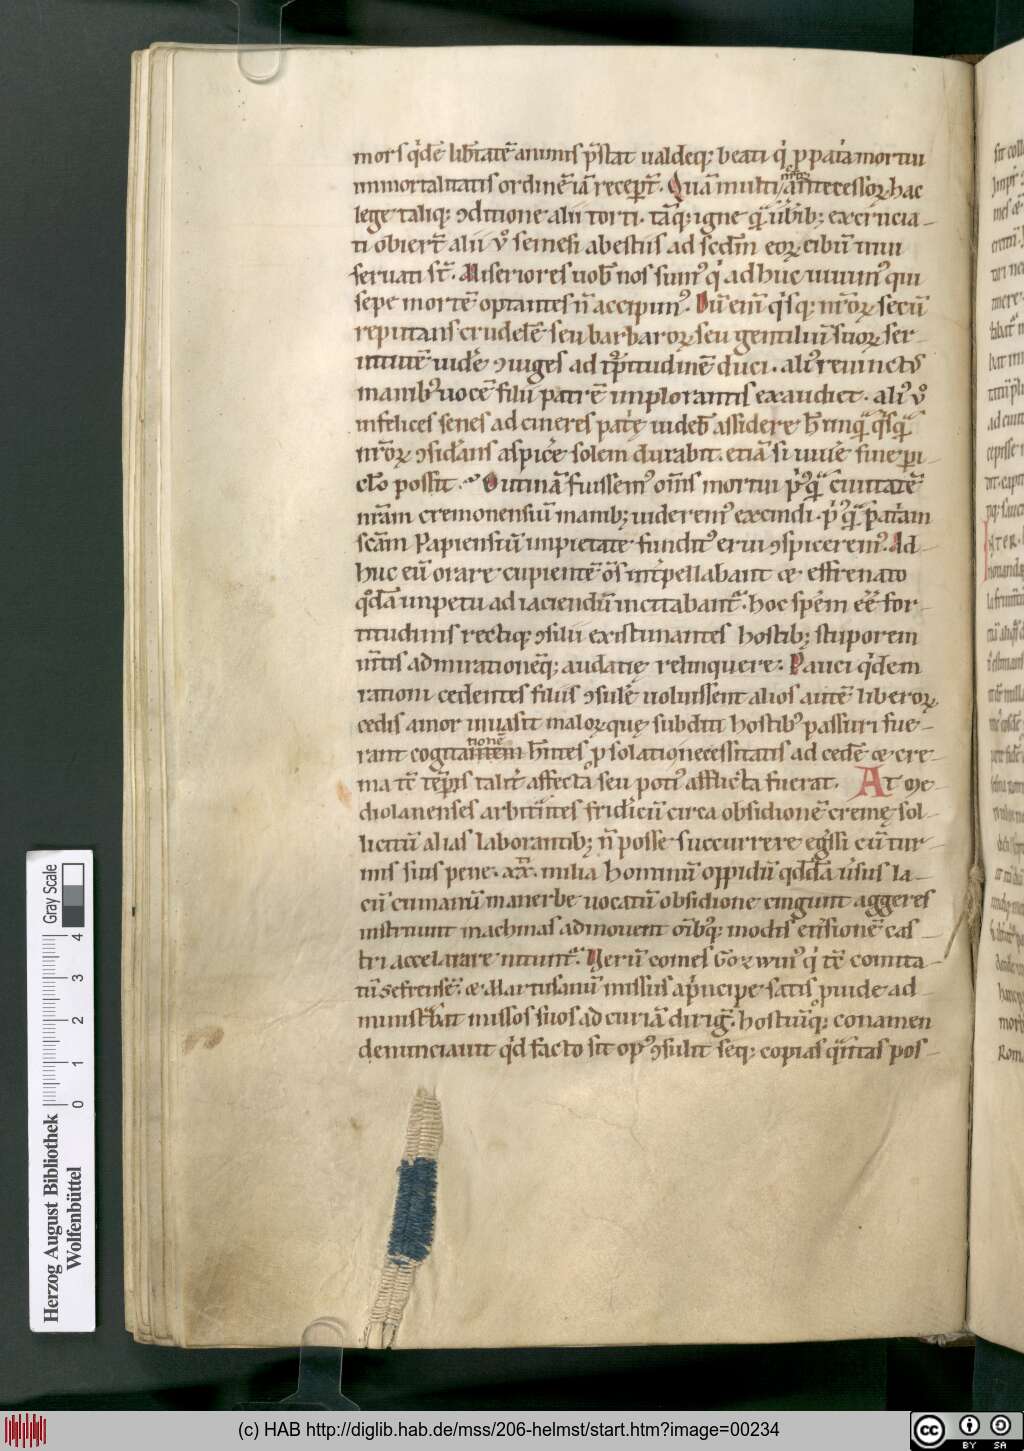 mors q̇dē lib̄tatē animis p̄stat ualdeq; beati q̇ ꝓ pat̓a mortui
inmortalitatis ordinē iā recep̄t. Quā multi nr̄oꝝ antecessoꝝ hac
lege taliq; ↄditione alii torti. tāq; igne q̄ uib; excrucia-
ti obier̄t alii v̊ semesi a bestiis ad sedm̄ eoꝝ cibū uiui
seruati st̄. Miseriores uob̄ nos sumꝰ q̇ adhuc uiuimꝰ qui
sepe mortē optantes n̄ accipimꝰ. Dū enī q̇sq; nr̄oꝝ secū
reputans crudelē seu barbaroꝝ seu gentiliū suoꝝ ser-
uitutē uide ↄiuges ad turpitudinē duci. aliꝰ reuinctis
manibꝰ uocē filii patrē inplorantis exaudiet. aliꝰ v̊
infelices senes ad cineres pat̓e uideb̄ assidere
nr̄oꝝ ↄsidans aspice solem durabit. etiā si uiue sine ꝑi-
clo possit. O utinā fuissemꝰ om̄s mortui p̓ꝰq̄ ciuitatē
nr̄am cremonensiū manib; uideremꝰ excindi. p̓ꝰq̄ pat̓am
sc̄am Papiensiū inpietate funditꝰ erui ↄspiceremꝰ. Ad-
huc eū orare cupientē om̄s int̓pellabant & effrenato
q̇dā inpetu ad iaciendū incitabantᷣ. hoc spēm eē for-
titudinis rectiq; ↄsilii existimantes hostib; stuporem
m̄tis admirationēq; audatię relinquere. Pauci q̇dem
rationi cedentes filiis ↄsulē uoluissent alios autē liberoꝝ
cedis amor inuasit maloꝝ quę subditi hostibꝰ passuri fue-
rant cogitationē h̄ntes ꝓ solatio necessitatis ad cedē & cre-
ma tē tēp̄is talit̓ affecta seu potiꝰ afflicta fuerat. At me-
diolanenses arbit̓ntes frid̓icū circa obsidionē cremę sol-
licitū alias laborantib; n̄ posse succurrere eg̓ssi cū tur-
mis suis pene. xxx. milia hominū oppidū qddā ūsus la-
cū cumanū manerbe uocatū obsidione cingunt aggeres
instruunt machinas admouent om̄ibꝰq; modis eūsionē cas-
tri accelarare nitunt̃. Verū comes Gozwinꝰ q̇ tē comita-
tū Sefrensē & Martusanū missus a p̓ncipe satis ꝓuide ad-
ministrabat missos suos ad curiā dirig̓. hostiūq; conamen
denunciauit q̇d facto sit opꝰ ↄsulit seq; copias q̄ntas pos-
Herzog August Bibliothek
Wolfenbüttel
0 1 2 3 4
Gray Scale
(c) HAB http://diglib.hab.de/mss/206-helmst/start.htm?image=00234
cc BY SA